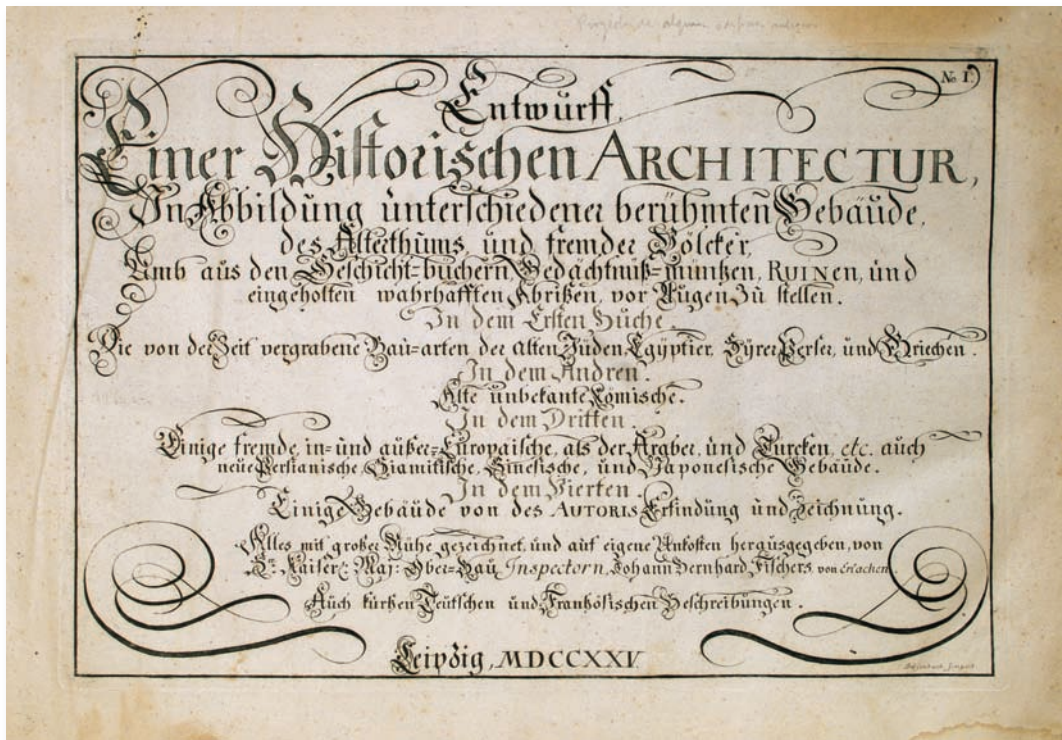 No. I.
Entwurff
Einer Historischen ARCHITECTUR,
In Abbildung unterschiedener berühmten Gebäude,
des Alterthums, und fremder Völcker,
Umb aus den Geschicht-büchern, Gedächtnüß-müntzen, RUINEN, und
eingeholten wahrhafften Abrißen, vor Augen zu stellen.
In dem Ersten Buche.
Die von der Zeit vergrabene Bau-arten der alten Jüden, Egyptier, Syrer, Perser, und Griechen.
In dem Andren.
Alte unbekante Römische.
In dem Dritten.
Einige fremde, in- und außer-Europäische, als der Araber, und Turcken, etc. auch
neue Persianische, Siamitische, Sinesische, und Japonesische Gebäude.
In dem Vierten.
Einige Gebäude von des AUTORIS Erfindung und Zeichnung.
Alles mit großer Mühe gezeichnet, und auf eigene Unkosten herausgegeben, von
Sr. Kaiserl: Maj: Ober-Bau Inspectorn, Johann Bernhard, Fischers, von Erlachen.
Auch kurtzen Teutschen und Frantzösischen Beschreibungen.
Leipzig, MDCCXXV